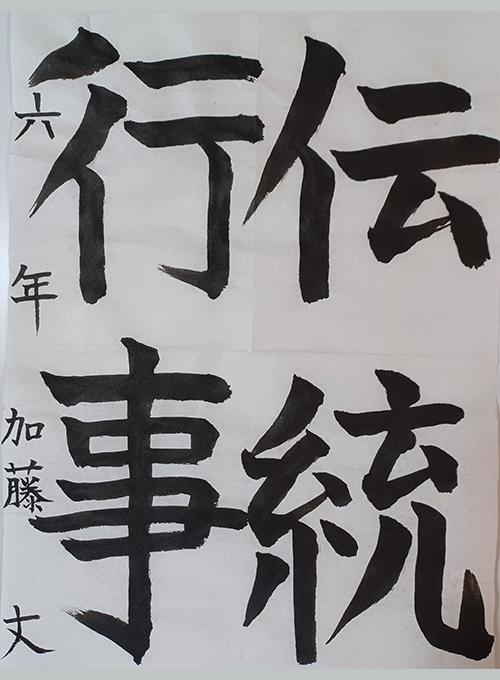 伝統
行事
六年 加藤 丈